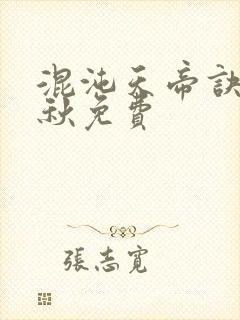 混沌天帝訣
秋免費
張志寬